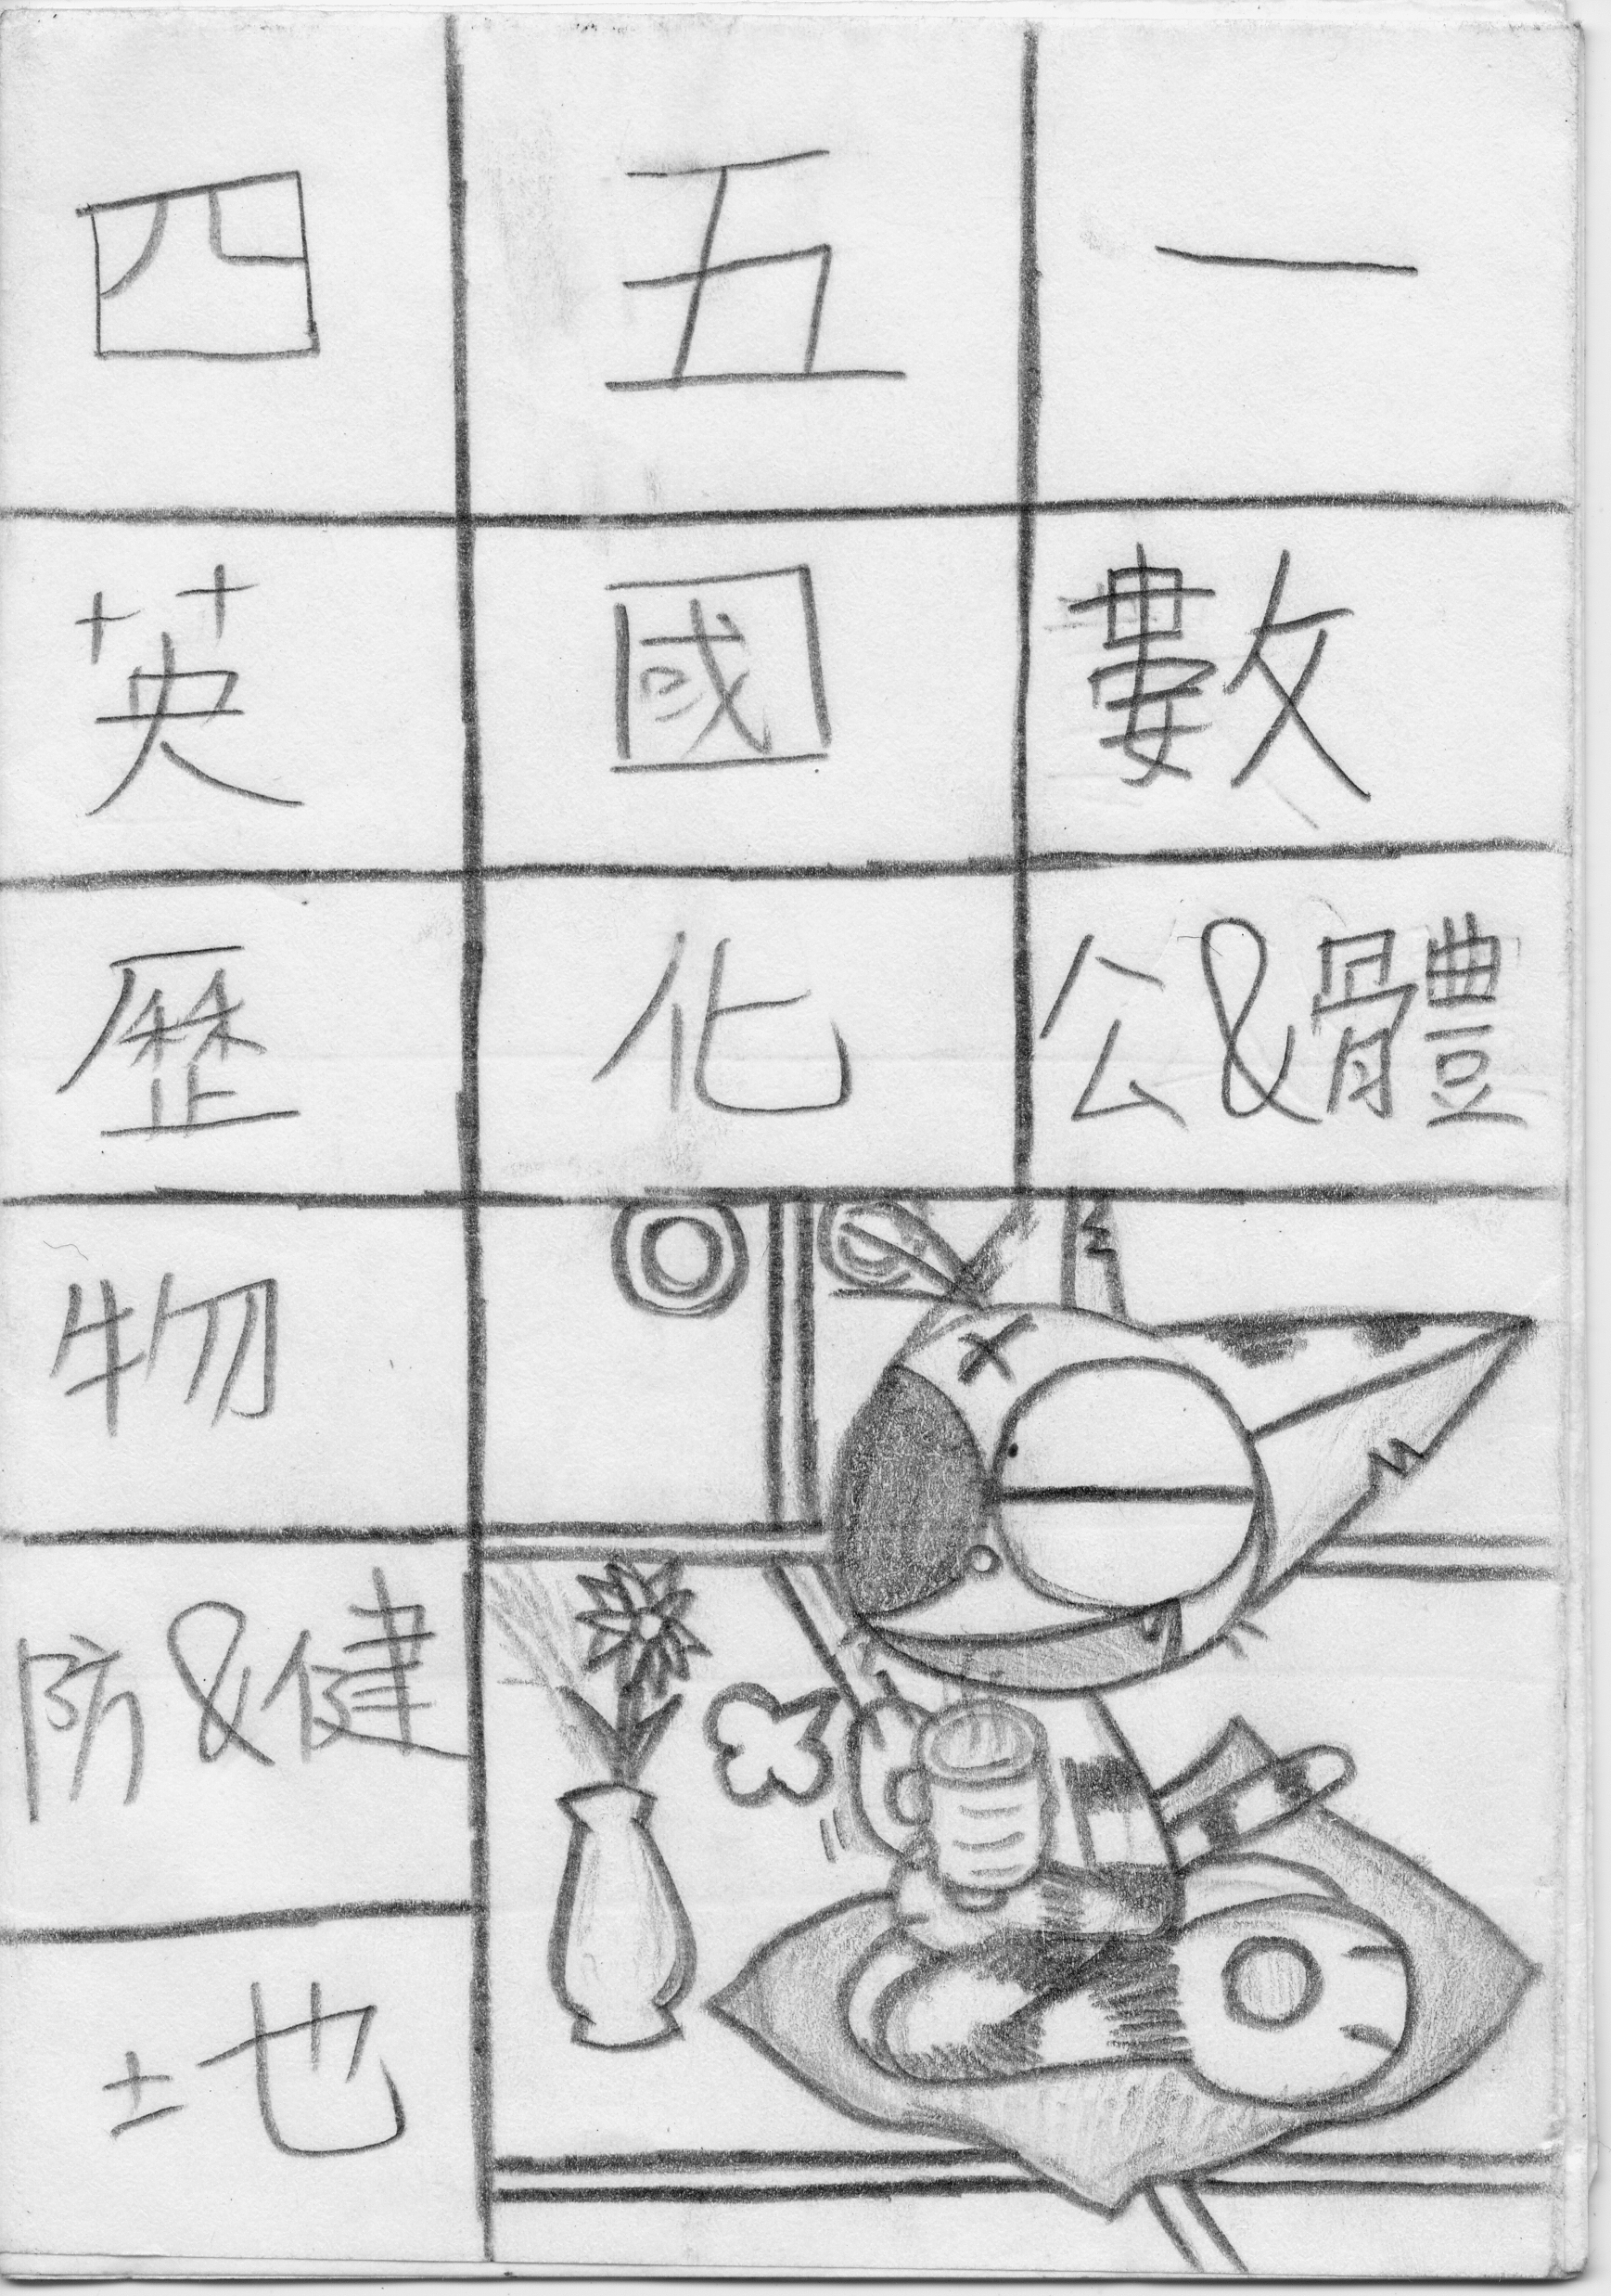 四 五 一
英 國 數
歷 化 公&體
物
防&健
地